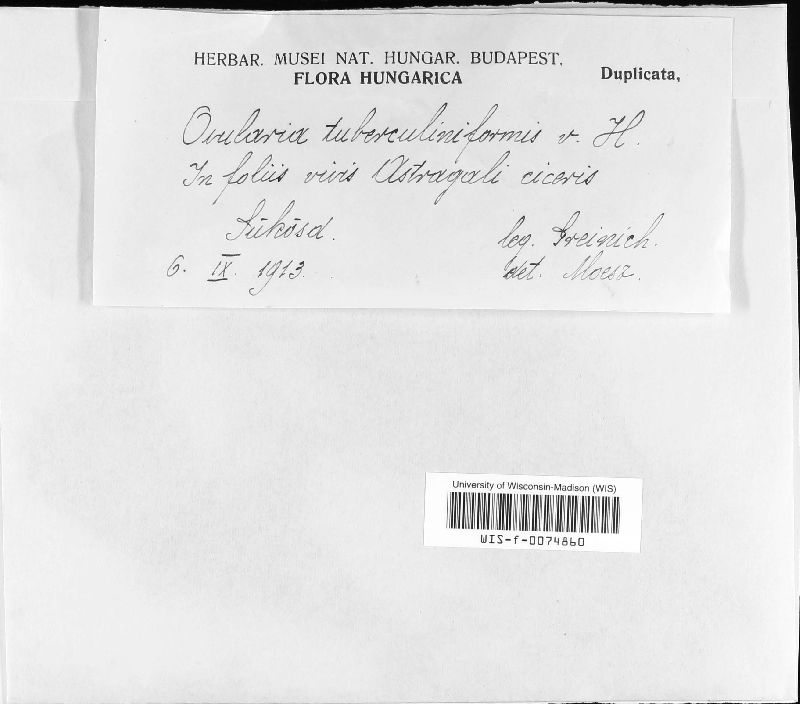 HERBAR. MUSEI NAT. HUNGAR. BUDAPEST,
FLORA HUNGARICA
Duplicata,
Ovularia tuberculiniformis v. H.
In foliis vivis Astragali ciceris
Sükösd.
leg. Greinich.
6. IX. 1913.
det. Moesz.
University of Wisconsin-Madison (WIS)
WIS-f-0074860